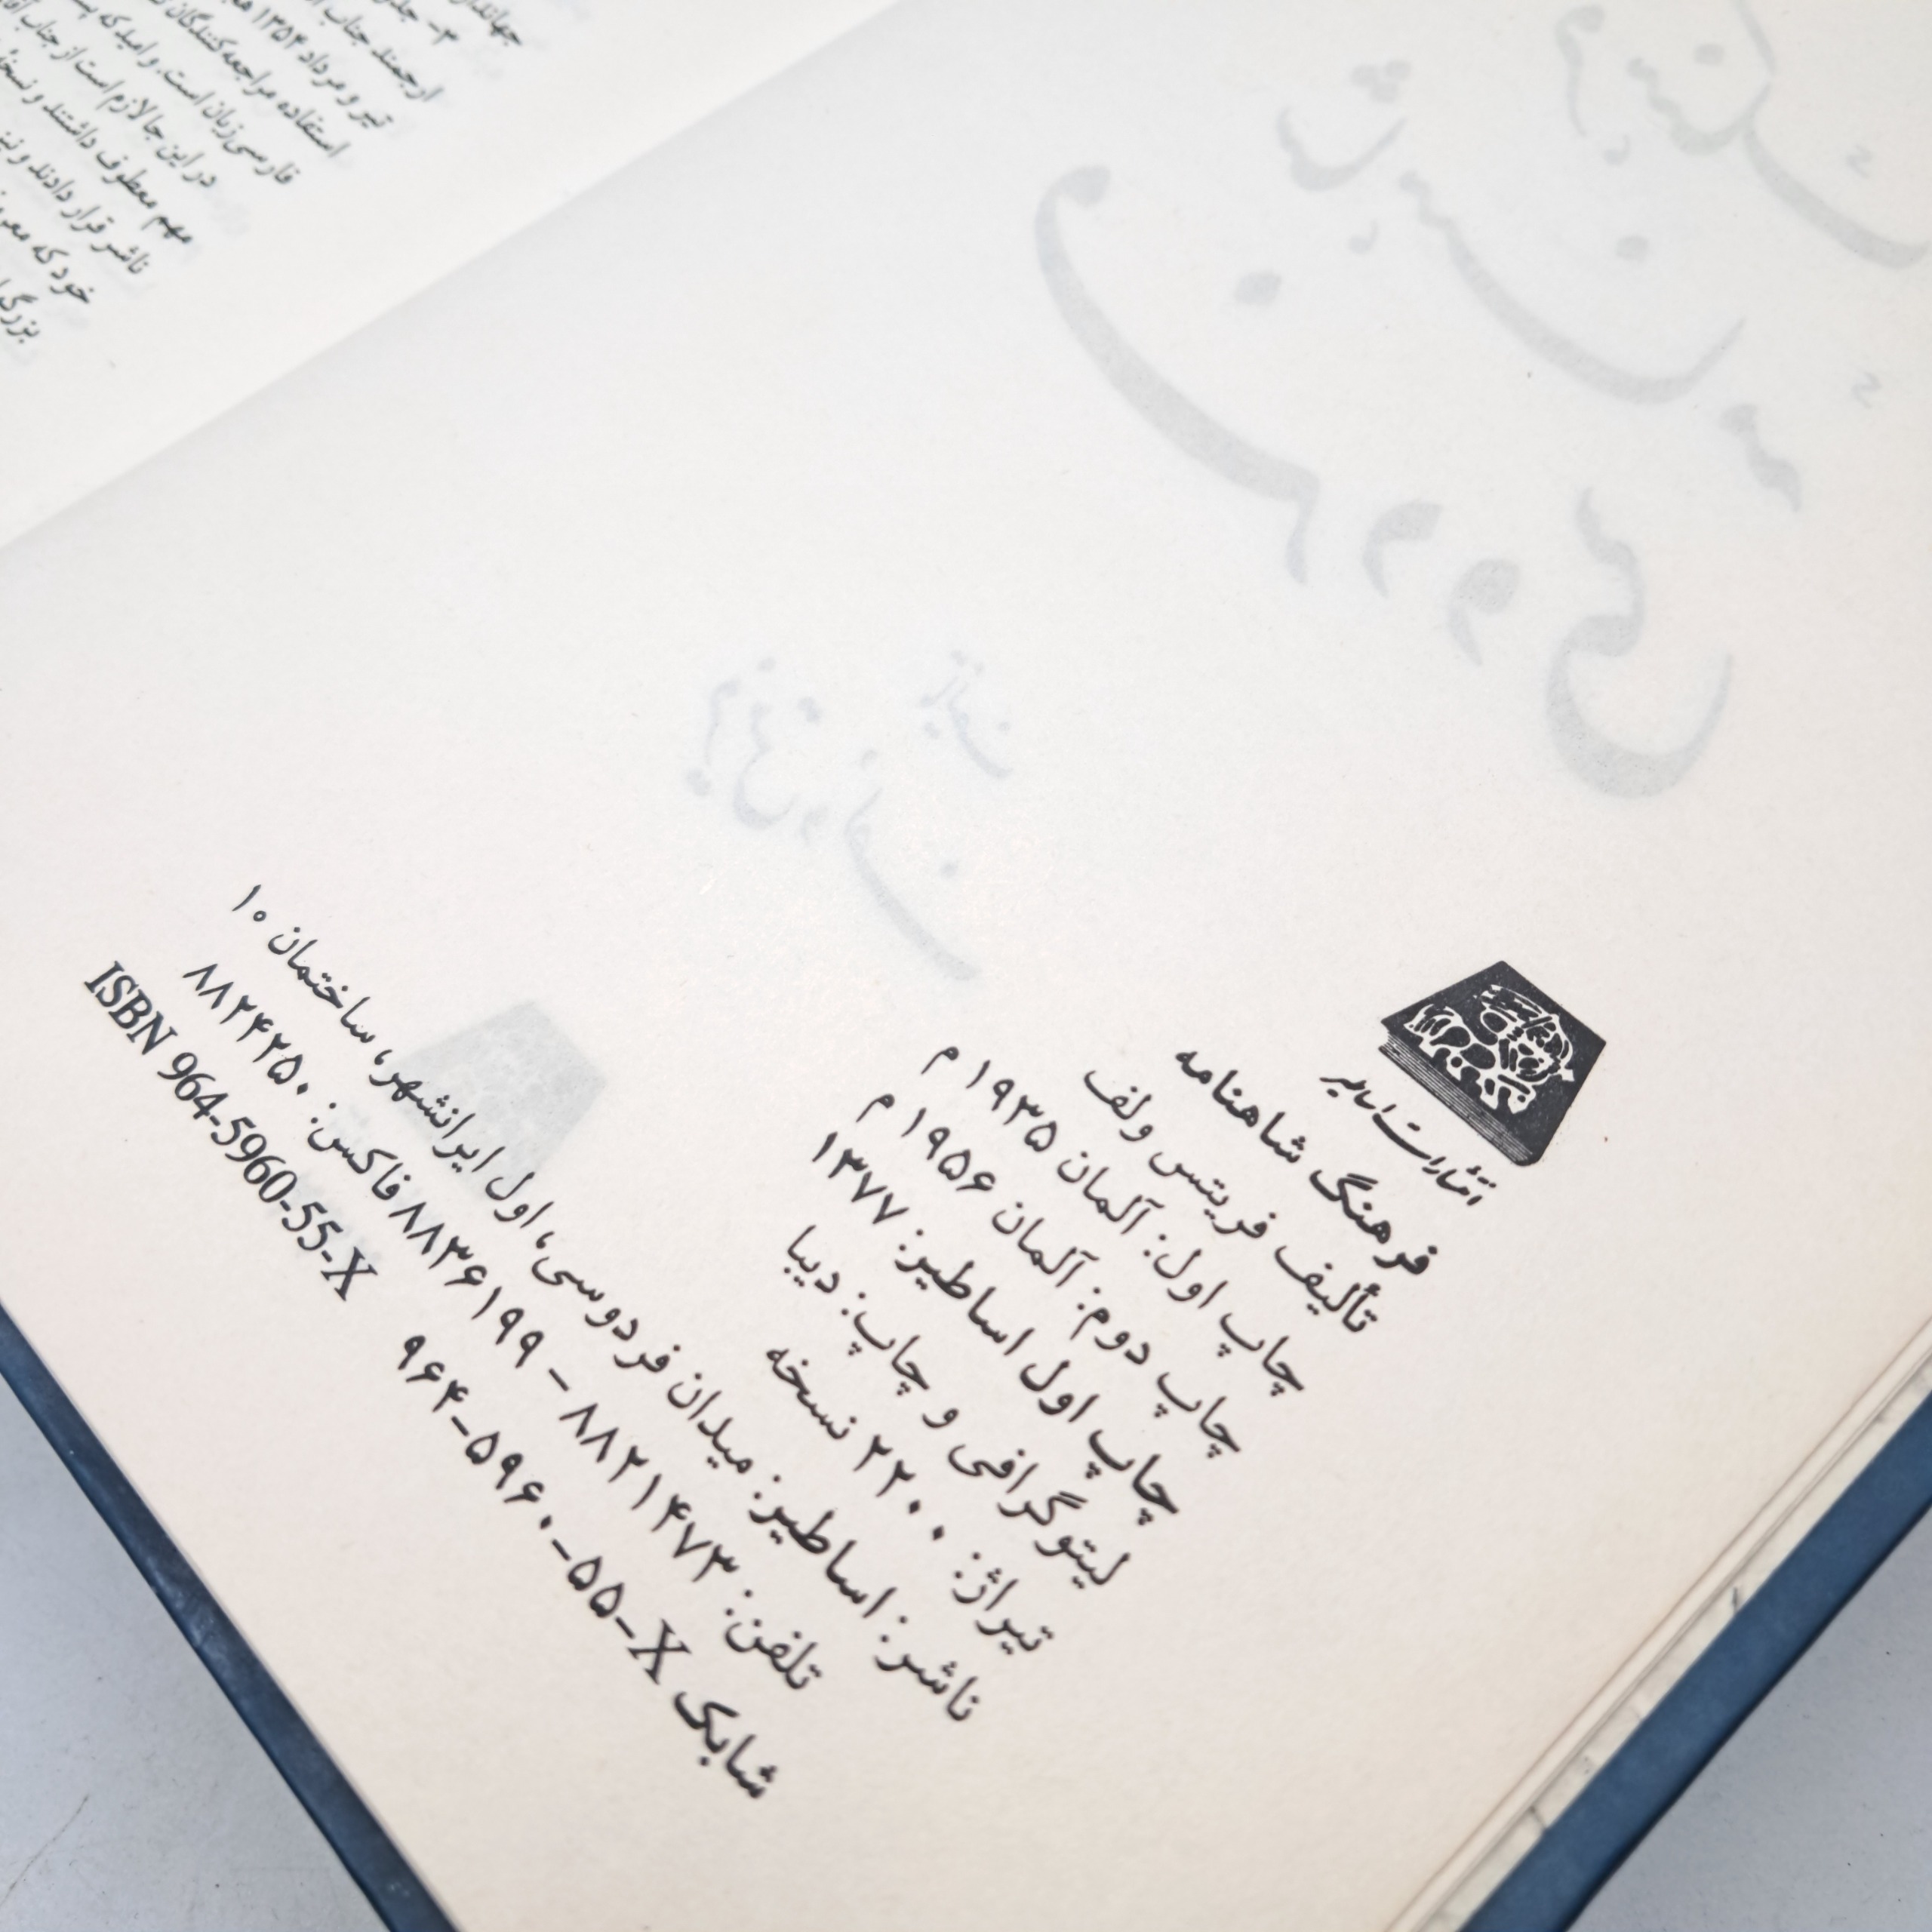 انتشارات اساطیر
فرهنگ شاهنامه
تألیف فریتس ولف
چاپ اول: آلمان ۱۹۳۵ م
چاپ دوم: آلمان ۱۹۵۶ م
چاپ اول اساطیر: ۱۳۷۷
لیتوگرافی و چاپ: دیبا
تیراژ: ۲۲۰۰ نسخه
ناشر: اساطیر: میدان فردوسی، اول ایرانشهر، ساختمان ۱۰
تلفن: ۸۸۲۱۴۷۳ – ۸۸۳۶۱۹۹ فاکس: ۸۸۲۴۲۵۰
شابک X-۹۶۴-۵۹۶۰-۵۵ ISBN 964-5960-55-X
جهاندار
۳- جلد
ارجمند جناب
تیر و مرداد ۱۳۵۴
استفاده مراجعه‌کنندگان
فارسی‌زبان است. و امید که
در این جا لازم است از جناب
مهم معطوف داشتند و نسخهٔ
ناشر قرار دادند و نیز
خود که